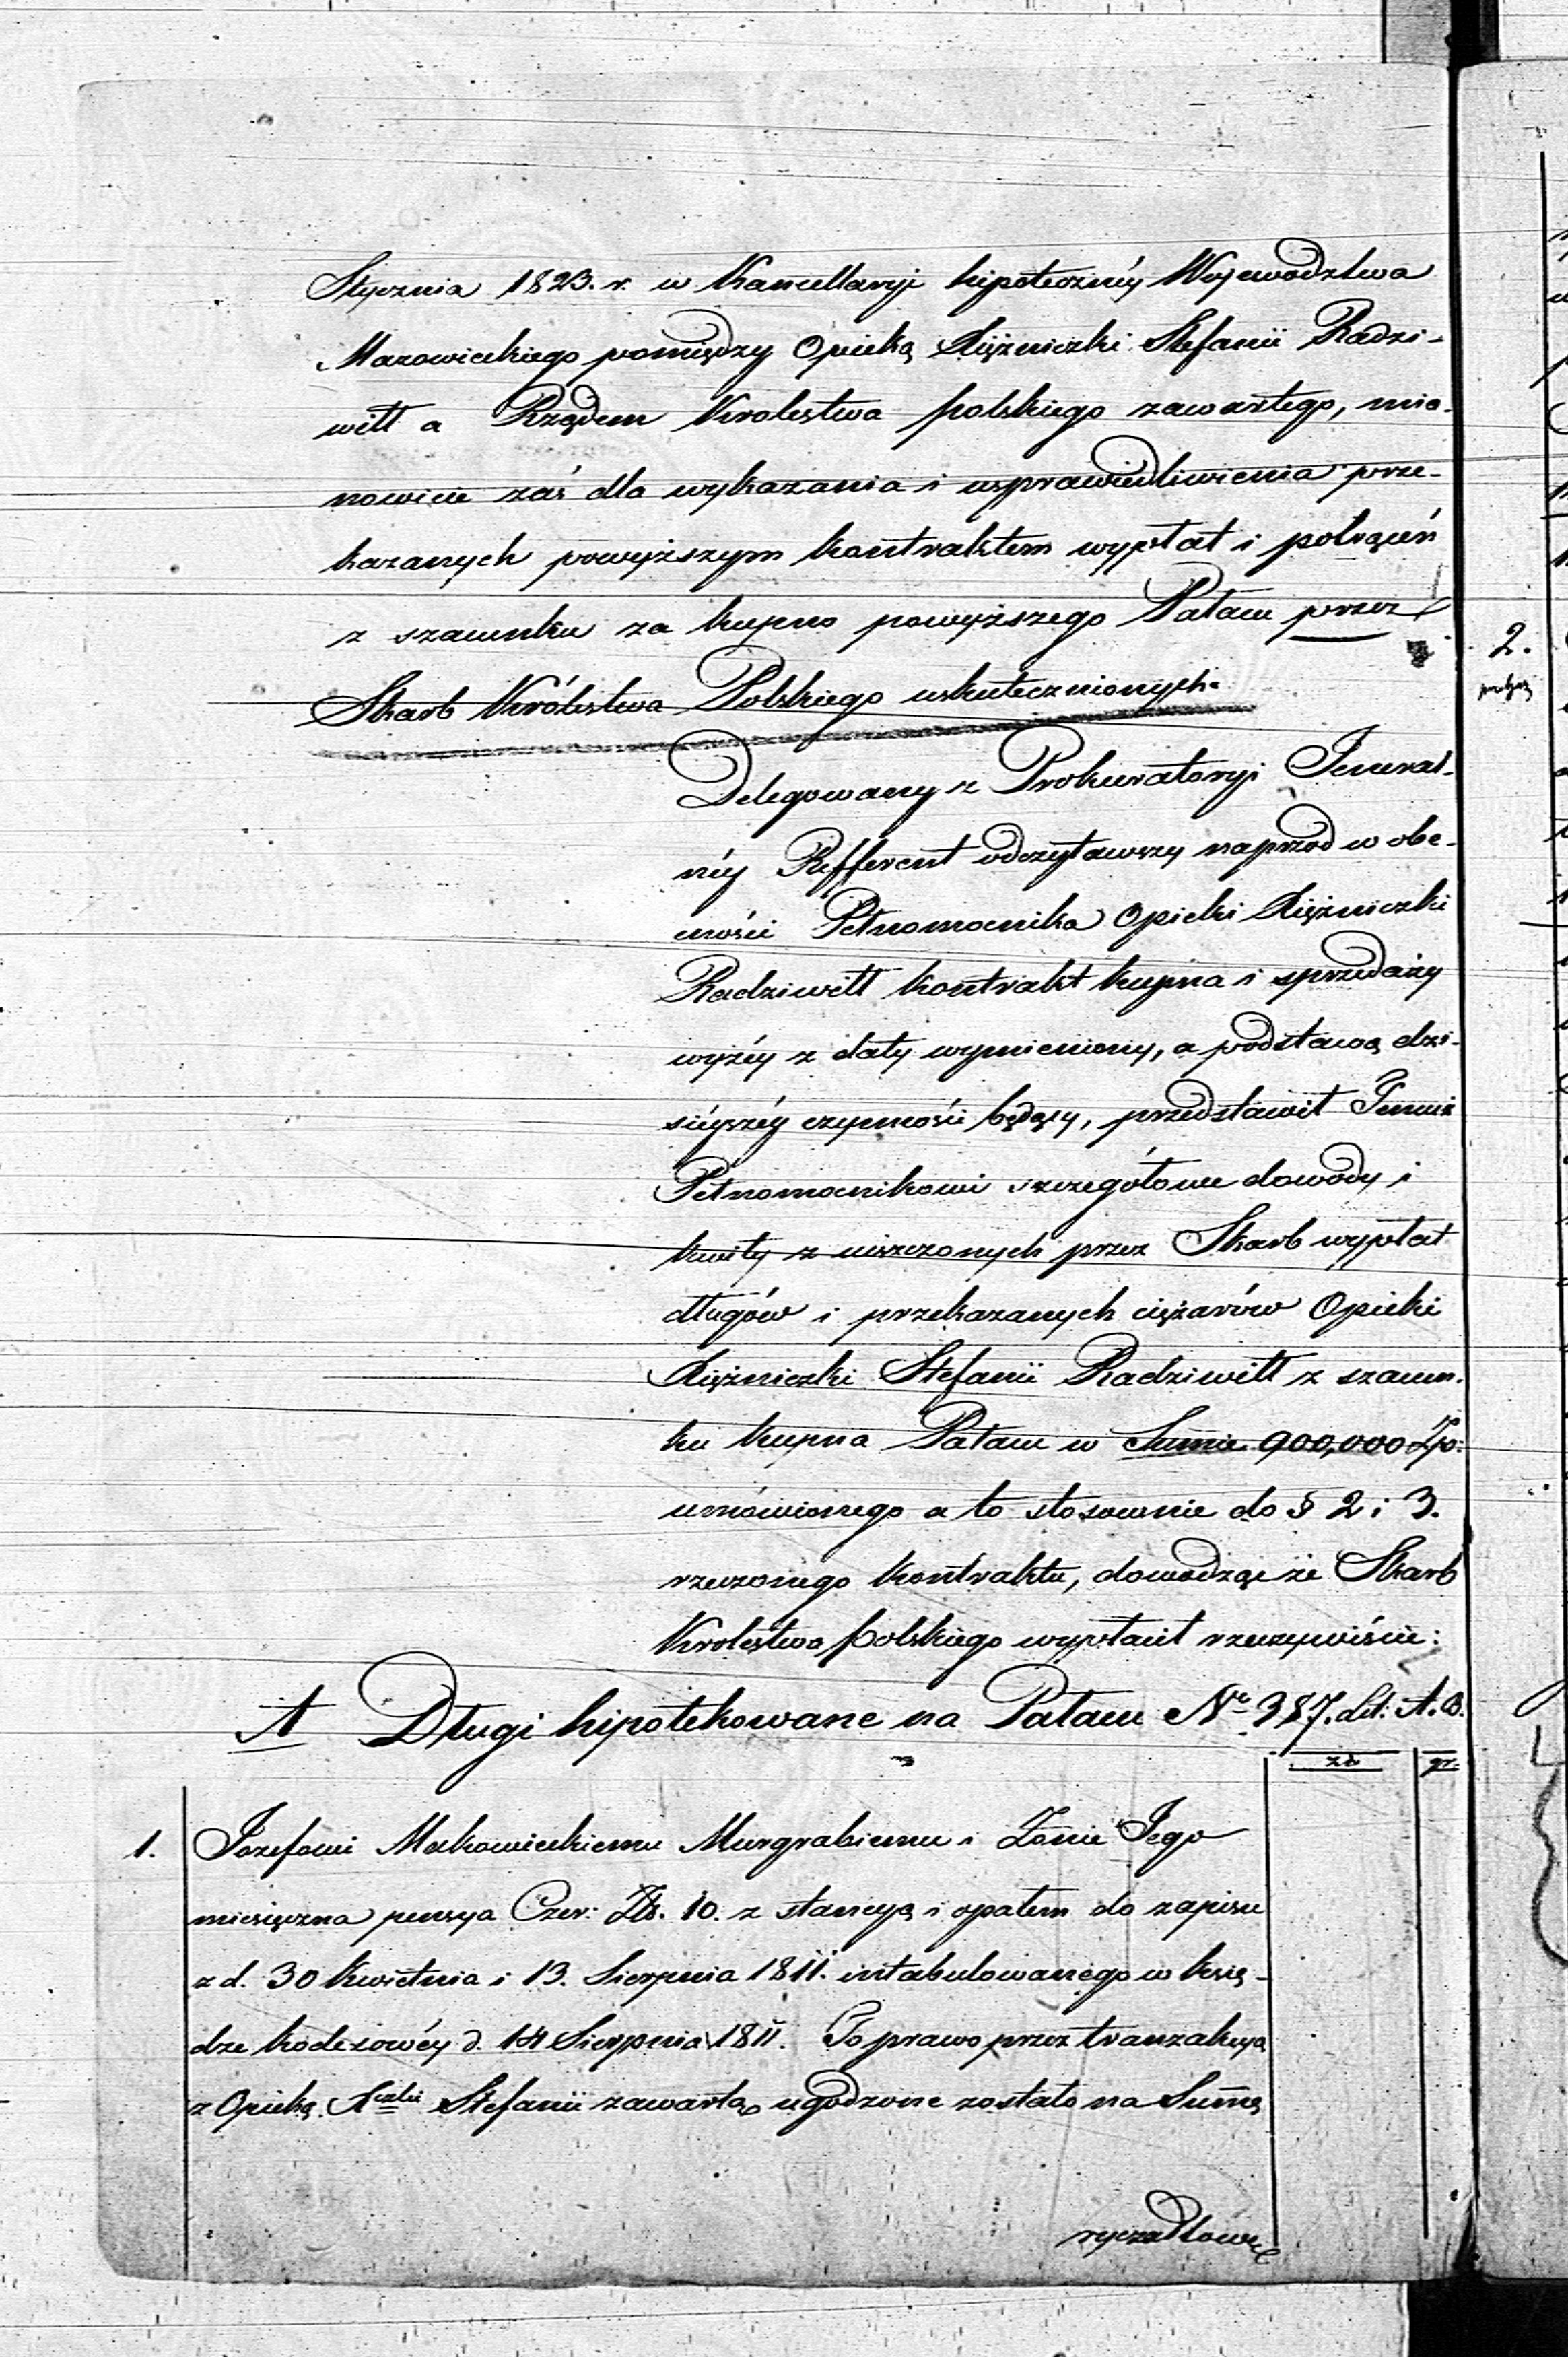 Stycznia 1823. r. w Kancellaryi hipoteczney Wojewodztwa
Mazowieckiego pomiędzy Opieką Xiężniczki Stefanii Radzi-
wiłł a Rządem Krolestwa polskiego zawartego, mia-
nowicie zaś dla wykazania i usprawiedliwienia prze-
kazanych powyższym kontraktem wypłat i potrąceń
z szacunku za kupno powyższego Pałacu przez
Skarb Królestwa Polskiego uskutecznionych.
Delegowany z Prokuratoryi Jeneral-
néy Refferent odczytawszy naprzód w obe-
cności Pełnomocnika Opieki Xiężniczki
Radziwiłł kontrakt kupna i sprzedaży
wyżéy z daty wymieniony, a podstawą dzi-
siéyszéy czynności będący, przedstawił Temuż
Pełnomocnikowi szczegółowe dowody i
kwity z uiszczonych przez Skarb wypłat
długów i przekazanych ciężarów Opieki
Xiężniczki Stefanii Radziwiłł z szacun-
ku kupna Pałacu w Sumie 900,000 Złp.
umówionego a to stosownie do § 2 i 3.
rzeczonego kontraktu, dowodząc że Skarb
Krolestwa polskiego wypłacił rzeczywiście:
A Długi hipotekowane na Pałacu No 387. Lit: A.B.
zł gr:
1. Jozefowi Makowieckiemu Murgrabiemu i Żonie Jego
miesięczna pensya Czer: Zł. 10. z stancyą i opałem do zapisu
z d. 30 Kwietnia i 13. Sierpnia 1811. intabulowanego w księ-
dze kodexowéy d. 14 Sierpnia 1811. To prawo przez tranzakcyą
z Opieką Xczki Stefanii zawartą ugodzone zostało na Summę
ryczałtową
2.